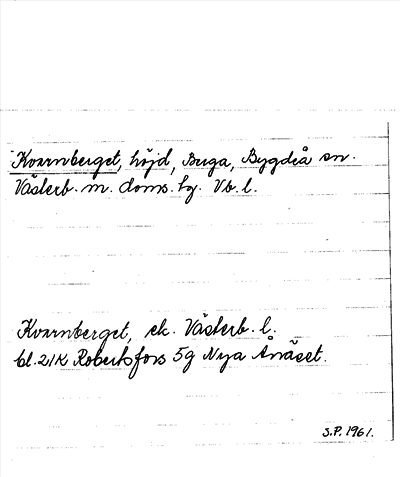 Kvarnberget, höjd, Buga, Bygdeå sn.
Västerb. m. doms. tg. Vb. l.
Kvarnberget, ek. Västerb. l.
bl. 21K Robertsfors 5g Nya Ånäset.
S.P. 1961.